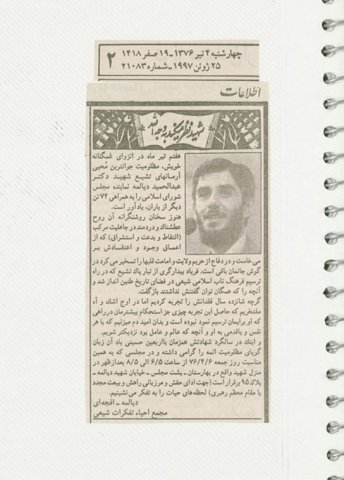 چهارشنبه ۴ تیر ۱۳۷۶ ـ ۱۹ صفر ۱۴۱۸
۲۵ ژوئن ۱۹۹۷ ـ شماره ۲۱۰۸۳
۲
اطلاعات
شهید نظر میکند به وجه الله
هفتم تیر ماه در انزوای غمگنانه
خویش، مظلومیت جوانترین مُحیی
آرمانهای تشیع شهید دکتر
عبدالحمید دیالمه نماینده مجلس
شورای اسلامی را به همراهی ۷۲ تن
دیگر از یاران، یادآور است.
هنوز سخنان روشنگرانه آن روح
عطشناک و دردمند در جاهلیت مرکب
(التقاط و بدعت و استشراق) که از
اعماق وجود و اعتقادش بر
می‌خاست و در دفاع از حریم ولایت و امامت قلبها را تسخیر می‌کرد در
گوش جانمان باقی است. فریاد بیدارگری از تبار پاک تشیع که در راه
ترسیم فرهنگ ناب اسلامی شیعی در فضای تاریخ طنین انداز شد و
آنچه را که همگان توان گفتنش نداشتند بازگفت.
گرچه شانزده سال فقدانش را تجربه کردیم اما در اوج اشک و آه
مفتخریم که حاصل این تجربه چیزی جز استحکام بیشترمان در راهی
که او برایمان ترسیم نمود نبوده است و بدان امید دم میزنیم که با هر
نفس و یاقدمی به او و آنچه که عالم و عامل بود نزدیکتر شویم.
و اینک در سالگرد شهادتش همزمان بااربعین حسینی یاد آن زبان
گویای مظلومیت ائمه را گرامی داشته و در مجلسی که به همین
مناسبت روز جمعه ۷۶/۴/۶ از ساعت ۶/۵ الی ۸/۵ بعدازظهر در
منزل شهید واقع در بهارستان ـ پشت مجلس ـ خیابان شهید دیالمه ـ
پلاک ۹۵ برقرار است (جهت ادای حقش و مرزبانی راهش و بیعت مجدد
با مقام معظم رهبری) لحظه‌های حیات را به تفکر می‌نشینیم.
دیالمه ـ افجه‌ای
مجمع احیاء تفکرات شیعی